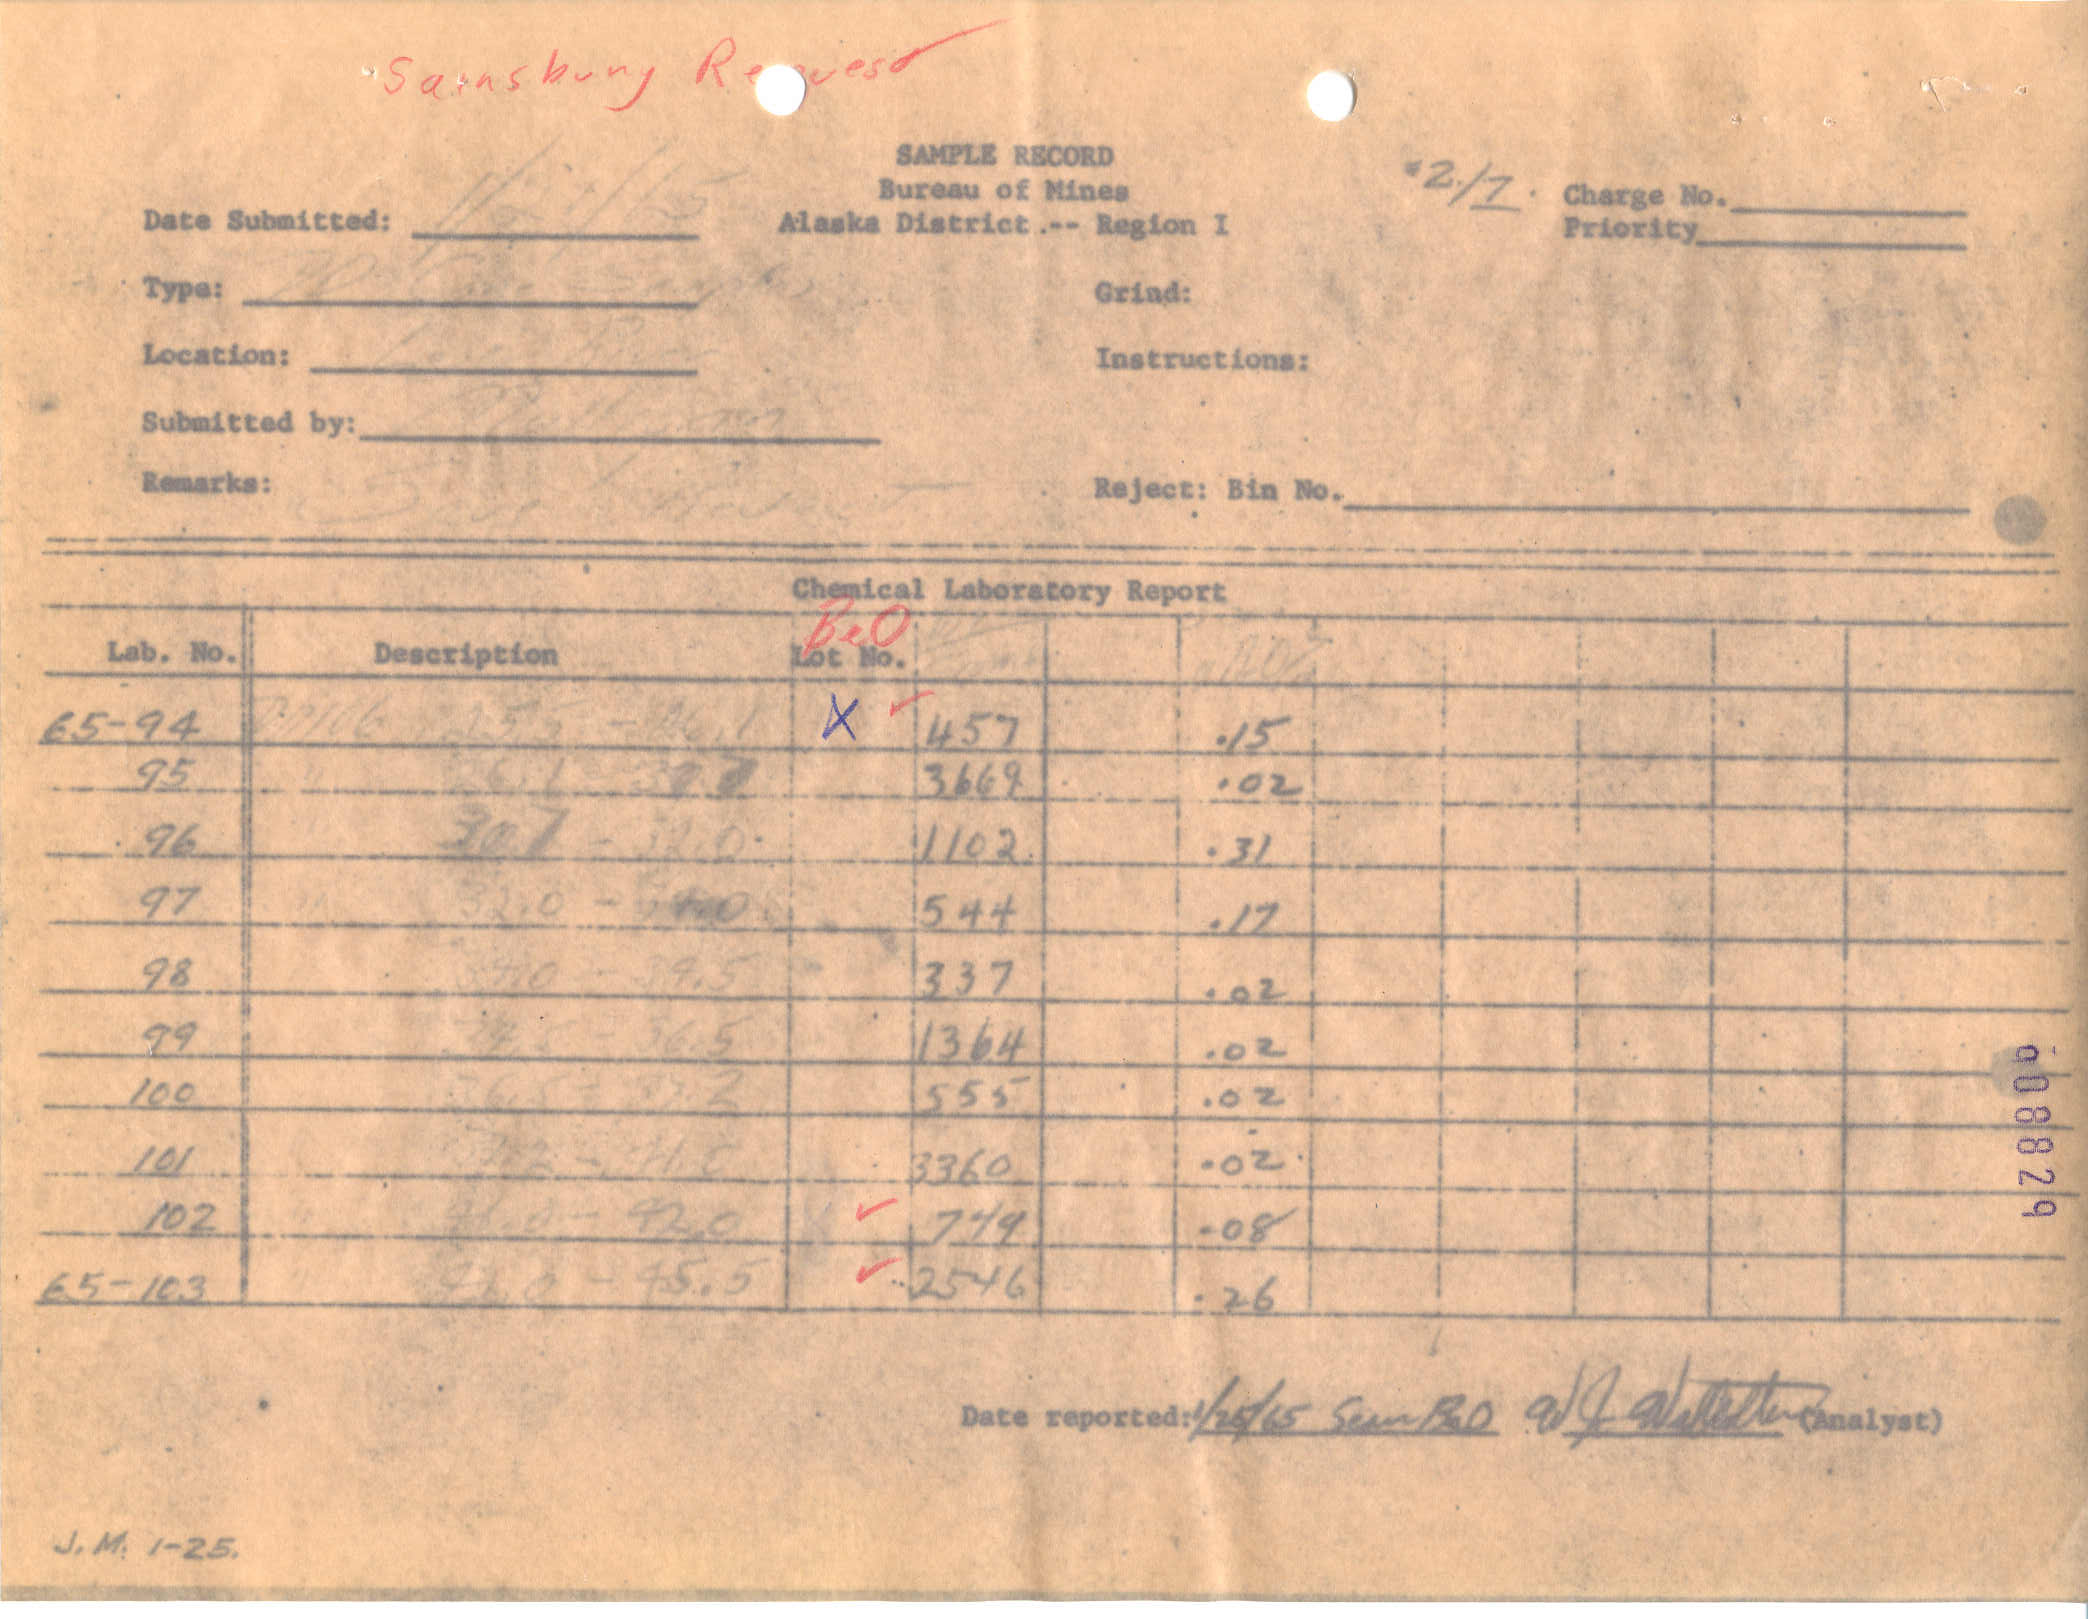 Sainsbury Request
SAMPLE RECORD
Bureau of Mines
Alaska District -- Region I
#2/7. Charge No.
Priority
Date Submitted: 1/21/65
Type: Core
Grind:
Location:
Instructions:
Submitted by:
Remarks:
Reject: Bin No.
Chemical Laboratory Report
BeO
Lab. No. Description Lot No.
65-94 25.5 - 26.1 X ✓ 457 .15
95 " 26.1 - 30.7 3669 .02
96 " 30.7 - 32.0 1102 .31
97 " 32.0 - 34.0 544 .17
98 34.0 - 34.5 337 .02
99 34.5 - 36.5 1364 .02
100 36.5 - 37.2 555 .02
101 37.2 - 41.0 3360 .02
102 " 41.0 - 42.0 ✓ 749 .08
65-103 " 42.0 - 45.5 ✓ 2546 .26
Date reported: 1/25/65 BeO W J (Analyst)
J.M. 1-25.
008829